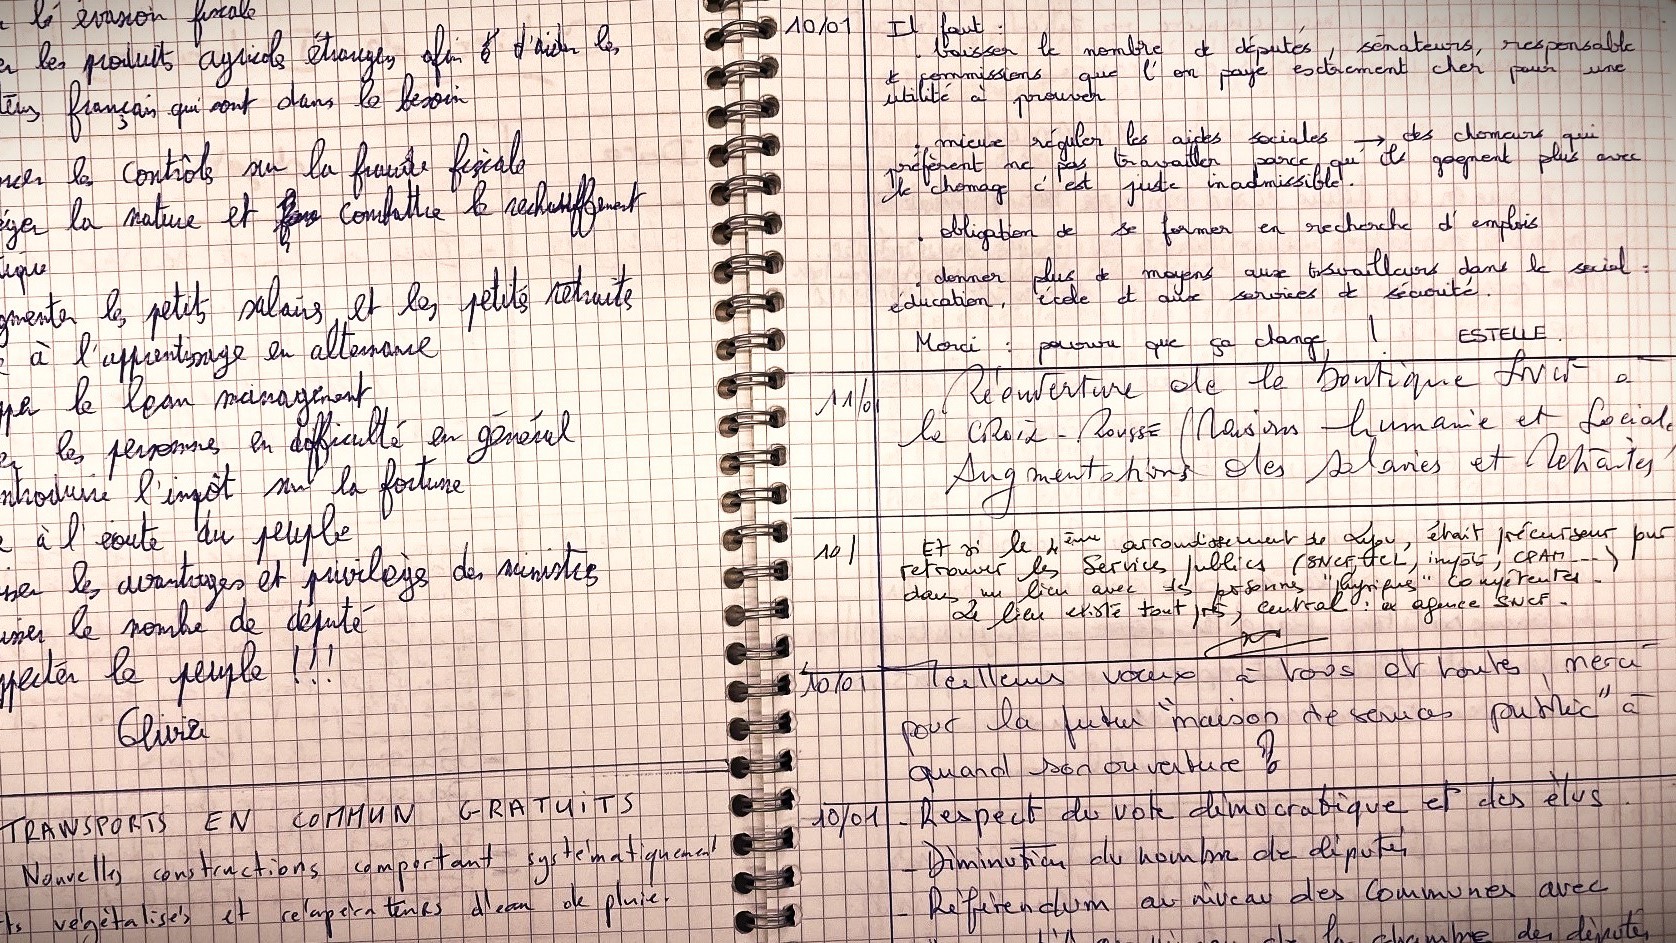 évasion fiscale
les produits agricole étranger afin d'aider les
français qui sont dans le besoin
les contrôls sur la fraude fiscale
la nature et combattre le rechauffement
ique
gmenter les petits salairs et les petits retraits
à l'apprentissage en alternance
le lean management
les personnes en difficulté en général
ntroduire l'impôt sur la fortune
à l'écoute du peuple
les avantages et privilègs des ministres
le nombre de député
pecter le peuple !!!
Olivia
TRANSPORTS EN COMMUN GRATUITS
Nouvelles constructions comportant systématiquement
ts végétalisés et récupérateurs d'eau de pluie.
10/01 Il faut :
. baisser le nombre de députés, sénateurs, responsable
de commissions que l'on paye extrement cher pour une
utilité à prouver
. mieux réguler les aides sociales → des chomeurs qui
préfèrent ne pas travailler parce qu'ils gagnent plus avec
le chomage c'est juste inadmissible.
. obligation de se former en recherche d'emplois
. donner plus de moyens aux travailleurs dans le social :
éducation, école et aux services de sécurité.
Merci : pourvu que ça change ! ESTELLE.
11/01 Réouverture de la boutique SNCF à
la CROIX-ROUSSE / Maisons humanie et Sociale
Augmentations des Salaries et Retraités
10/ Et si le 4ème arrondissement de Lyon, était précurseur pour
retrouver les Services publics (SNCF, TCL, impôt, CPAM ----)
dans un lieu avec des personnes "physiques" compétentes.
Le lieu existe tout prês, central : ex agence SNCF.
10/01 Meilleurs voeux à tous et toutes, merci
pour la futur "maison de services public" à
quand son ouverture ?
10/01 - Respect du vote démocratique et des élus.
- Diminution du nombre de députés
- Référendum au niveau des Communes avec
la chambre des députés